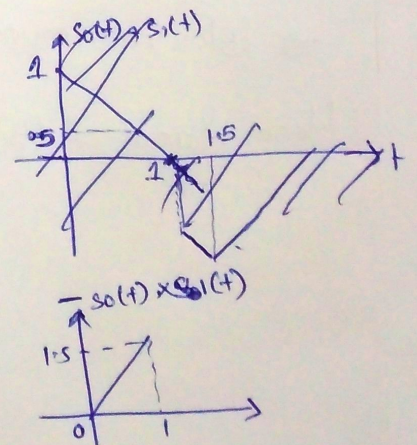 s0(t) s1(t)
1
.5
1 1.5 t
- s0(t) × s1(t)
1.5
0 1